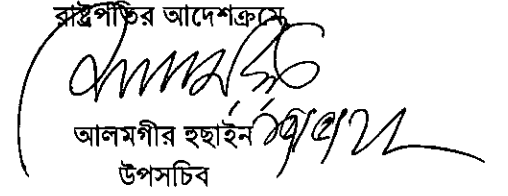 রাষ্ট্রপতির আদেশক্রমে,
আলমগীর হুছাইন
উপসচিব